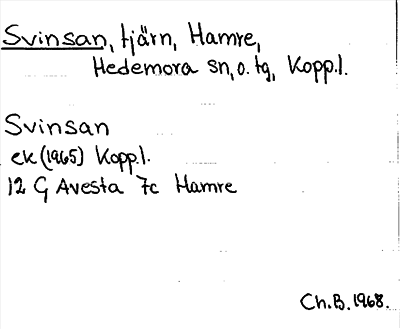 Svinsan, tjärn, Hamre,
Hedemora sn, o. tg, Kopp.l.
Svinsan
ek (1965) Kopp.l.
12 G Avesta 7c Hamre
Ch.B. 1968.